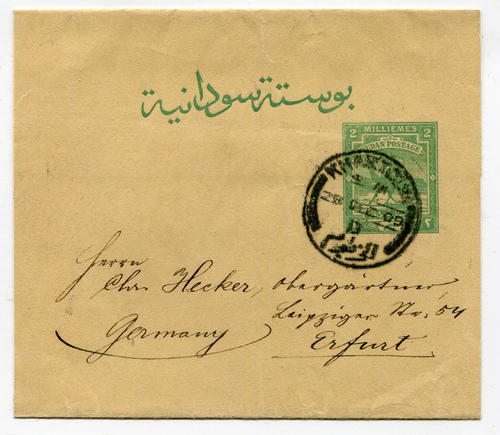 بوستة سودانية
2 MILLIEMES 2
SUDAN POSTAGE
KHARTOUM
28 DEC 09
الخرطوم
٢
Herrn
Chr Hecker, Obergärtner,
Leipziger Str. 54
Germany Erfurt.